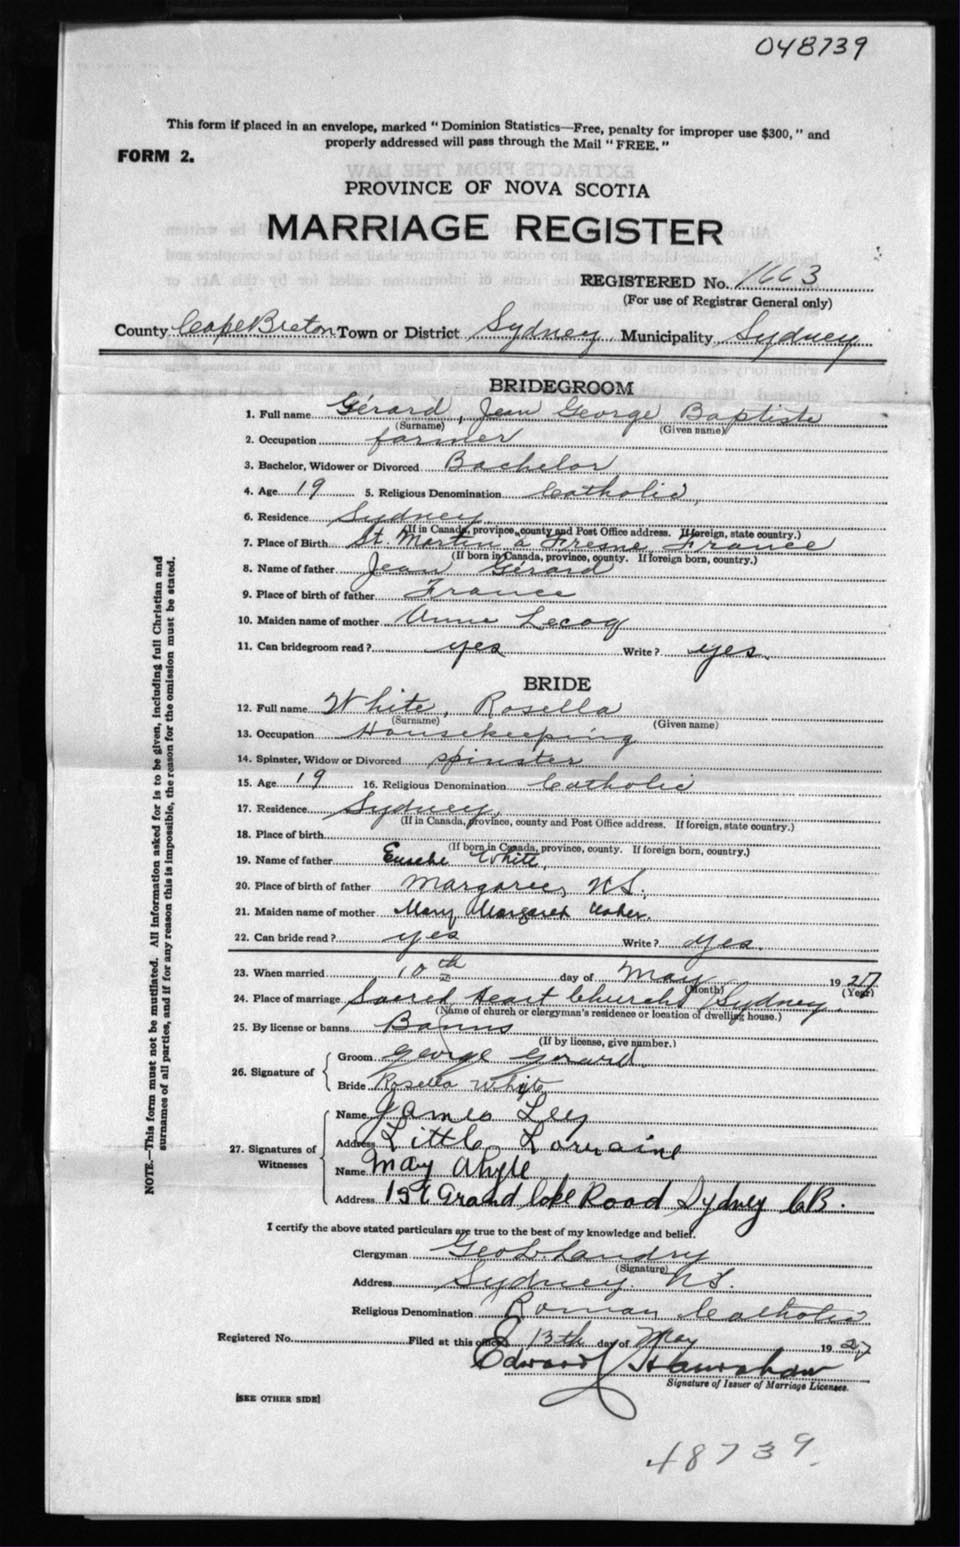 048739
This form if placed in an envelope, marked "Dominion Statistics—Free, penalty for improper use $300," and
properly addressed will pass through the Mail "FREE."
FORM 2.
PROVINCE OF NOVA SCOTIA
MARRIAGE REGISTER
REGISTERED No. 1663
(For use of Registrar General only)
County Cape Breton Town or District Sydney Municipality Sydney
BRIDEGROOM
1. Full name Gérard, Jean George Baptiste
(Surname) (Given name)
2. Occupation farmer
3. Bachelor, Widower or Divorced Bachelor
4. Age 19 5. Religious Denomination Catholic
6. Residence Sydney
(If in Canada, province, county and Post Office address. If foreign, state country.)
7. Place of Birth St. Martin a Fresne France
(If born in Canada, province, county. If foreign born, country.)
8. Name of father Jean Gérard
9. Place of birth of father France
10. Maiden name of mother Anne Lecoq
11. Can bridegroom read? yes Write? yes
BRIDE
12. Full name White, Rosella
(Surname) (Given name)
13. Occupation Housekeeping
14. Spinster, Widow or Divorced spinster
15. Age 19 16. Religious Denomination Catholic
17. Residence Sydney
(If in Canada, province, county and Post Office address. If foreign, state country.)
18. Place of birth
(If born in Canada, province, county. If foreign born, country.)
19. Name of father White
20. Place of birth of father Margaree, N.S.
21. Maiden name of mother Mary Margaret
22. Can bride read? yes Write? yes.
23. When married 10th day of May 1927
(Month) (Year)
24. Place of marriage Sacred Heart Church Sydney
(Name of church or clergyman's residence or location of dwelling house.)
25. By license or banns Banns
(If by license, give number.)
26. Signature of
Groom George Gerard
Bride Rosella Whyte
27. Signatures of Witnesses
Name James Ley
Address Little Lorraine
Name May Whyte
Address Grand Lake Road Sydney CB.
I certify the above stated particulars are true to the best of my knowledge and belief.
Clergyman Geo L. Landry
(Signature)
Address Sydney. N.S.
Religious Denomination Roman Catholic
Registered No. Filed at this office 13th day of May 1927
Edward
Signature of Issuer of Marriage Licenses.
[SEE OTHER SIDE]
48739
NOTE.—This form must not be mutilated. All information asked for is to be given, including full Christian and
surnames of all parties, and if for any reason this is impossible, the reason for the omission must be stated.